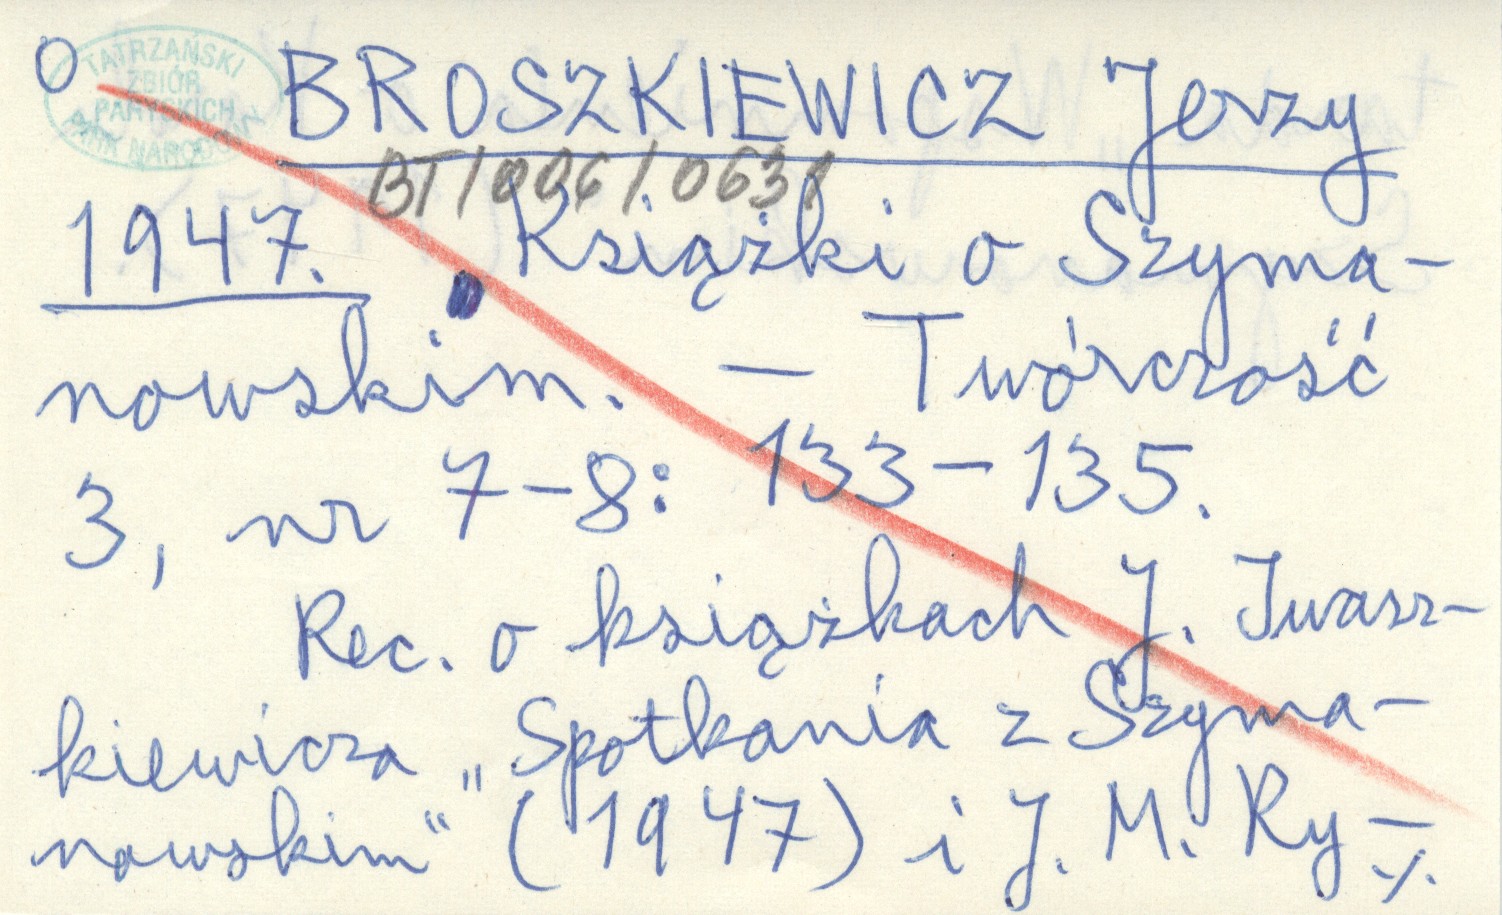 O
TATRZAŃSKI
ZBIÓR
PARYSKICH
PARK NARODOWY
BROSZKIEWICZ Jerzy
BT/006/0631
1947. Książki o Szyma-
nowskim. — Twórczość
3, nr 7-8: 133-135.
Rec. o książkach J. Iwasz-
kiewicza „Spotkania z Szyma-
nowskim“ (1947) i J. M. Ry-
./.